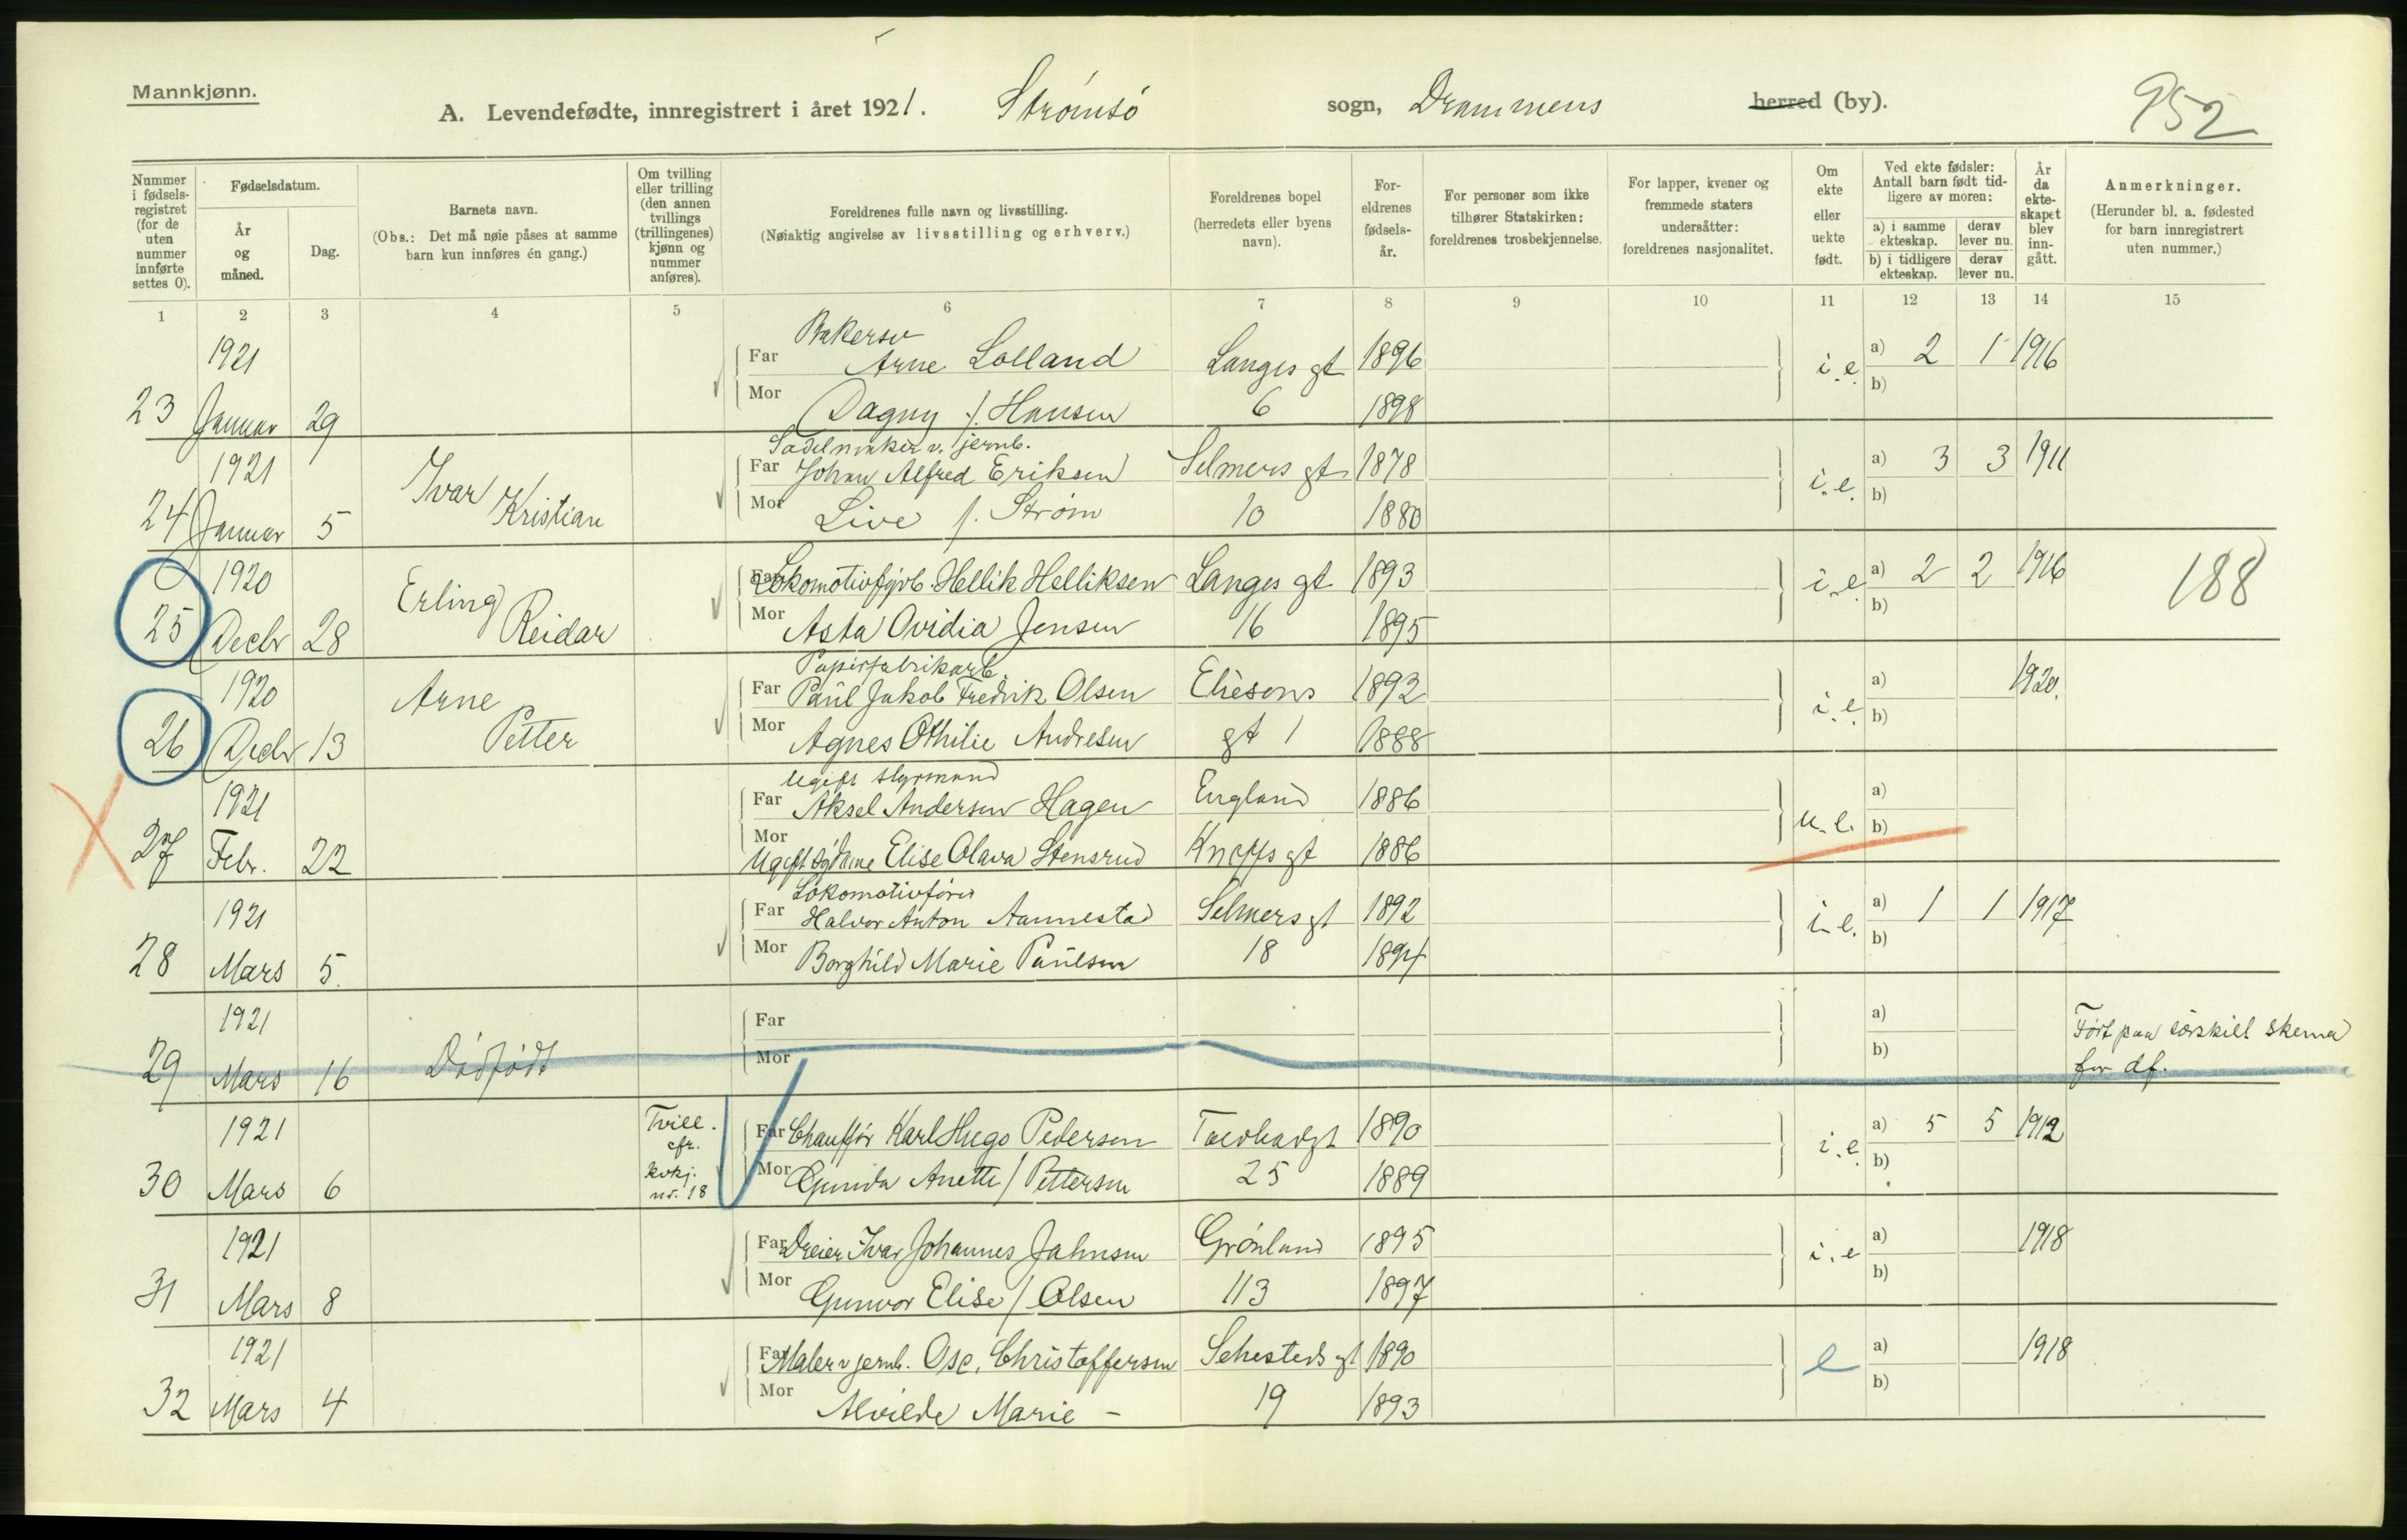 Mannkjønn.
A. Levendefødte, innregistrert i året 1921. Strømsö sogn, Drammens herred (by).
952
Nummer i fødselsregistret (for de uten nummer innførte settes 0).
Fødselsdatum.
År og måned.
Dag.
Barnets navn.
(Obs.: Det må nøie påses at samme barn kun innføres én gang.)
Om tvilling eller trilling (den annen tvillings (trillingenes) kjønn og nummer anføres).
Foreldrenes fulle navn og livsstilling.
(Nøiaktig angivelse av livsstilling og erhverv.)
Foreldrenes bopel (herredets eller byens navn).
Foreldrenes fødselsår.
For personer som ikke tilhører Statskirken: foreldrenes trosbekjennelse.
For lapper, kvener og fremmede staters undersåtter: foreldrenes nasjonalitet.
Om ekte eller uekte født.
Ved ekte fødsler: Antall barn født tidligere av moren:
a) i samme ekteskap.
derav lever nu.
b) i tidligere ekteskap.
derav lever nu.
År da ekteskapet blev inngått.
Anmerkninger.
(Herunder bl. a. fødested for barn innregistrert uten nummer.)
1 2 3 4 5 6 7 8 9 10 11 12 13 14 15
Bakersv
1921 Far Arne Lolland Langes gt 1896 i.e. a) 2 1 1916
23 Januar 29 Mor Dagny f. Hansen 6 1898 b)
Sadelmaker v. jernb.
1921 Ivar Far Johan Alfred Eriksen Selmers gt 1878 i.e. a) 3 3 1911
24 Januar 5 Kristian Mor Live f. Strøm 10 1880 b)
1920 Erling Far Lokomotivfyrb. Hellik Helliksen Langes gt 1893 i.e. a) 2 2 1916 188
25 Decbr 28 Reidar Mor Asta Ovidia Jensen 16 1895 b)
Papirfabrikarb.
1920 Arne Far Paul Jakob Fredrik Olsen Eliesons 1892 i.e. a) 1920.
26 Decbr 13 Petter Mor Agnes Othilie Andresen gt 1 1888 b)
Ugift styrmand
1921 Far Aksel Andersen Hagen England 1886 u.e. a)
27 Febr. 22 Mor Ugift Elise Olava Stensrud gt 1886 b)
Lokomotivfører
1921 Far Halvor Anton Aannestad Selmers gt 1892 i.e. a) 1 1 1917
28 Mars 5. Mor Borghild Marie Paulsen 18 1894 b)
1921 Far a) Ført paa særskilt skema
29 Mars 16 Dödfödt Mor b) for df.
1921 Tvill. cfr. Far Chauffør Karl Hugo Pedersen 1890 i.e. a) 5 5 1912
30 Mars 6 kvkj. nr. 18 Mor Gunda Anette / Pettersen 25 1889 b)
1921 Far Dreier Ivar Johannes Jahnsen Grönland 1895 i.e a) 1918
31 Mars 8 Mor Gunvor Elise / Olsen 113 1897 b)
1921 Far Maler v jernb. Osc. Christoffersen Sehesteds gt 1890 e a) 1918
32 Mars 4 Mor Alvilde Marie – 19 1893 b)